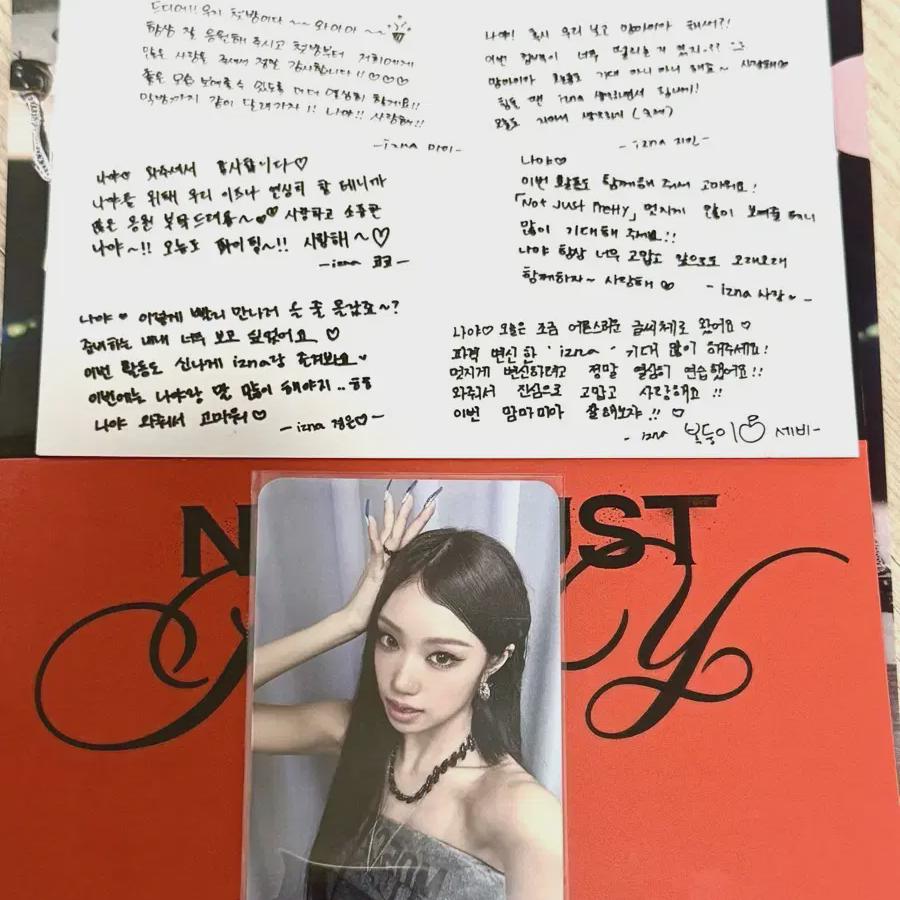 드디어!! 우리 첫방이다~~ 와아아~~
항상 잘 응원해 주시고 첫방부터 저희에게
많은 사랑을 주셔서 정말 감사합니다!!♡♡♡
좋은 모습 보여줄 수 있도록 더더 열심히 할게요!!
막방까지 같이 달려가자!! 나야!! 사랑해!!
-izna 마이-
나야♡ 와주셔서 감사합니다♡
나야를 위해 우리 이즈나 열심히 할 테니까
많은 응원 부탁드려용~♡♡ 사랑하고 소중한
나야~!! 오늘도 파이팅~!! 사랑해~♡
-izna 코코-
나야♥ 이렇게 빨리 만나러 온 줄 몰랐죠~?
준비하는 내내 너무 보고 싶었어요 ♡
이번 활동도 신나게 izna랑 즐겨봐요♥
이번에는 나야랑 말 많이 해야지..ㅎㅎ
나야 와줘서 고마워♡
-izna 정은♡-
나야! 혹시 우리 보고 맘마미아 해써?!
이번 컴백이 너무 떨리는거 있지.??
맘마미아 활동도 기대 마니 마니 해죠~ 사랑해♡
힘들 땐 izna 생각하면서 힘내기!
오늘도 지아너 생각하기
-izna 지민-
나야♡
이번 활동도 함께해 주셔서 고마워요!
「Not Just Pretty」 멋지게 많이 보여줄 테니
많이 기대해 주세요!!
나야 항상 너무 고맙고 앞으로도 오래오래
함께하자~ 사랑해♡
-izna 사랑♥-
나야♡ 오늘은 조금 어른스러운 글씨체로 왔어요♡
파격 변신한 'izna' 기대 많이 해주세요!
멋지게 변신하려고 정말 열심히 연습했어요!!
와줘서 진심으로 고맙고 사랑해요!!
이번 맘마미아 잘해보자!! ♡
-izna 복둥이 세비-
N UST
y